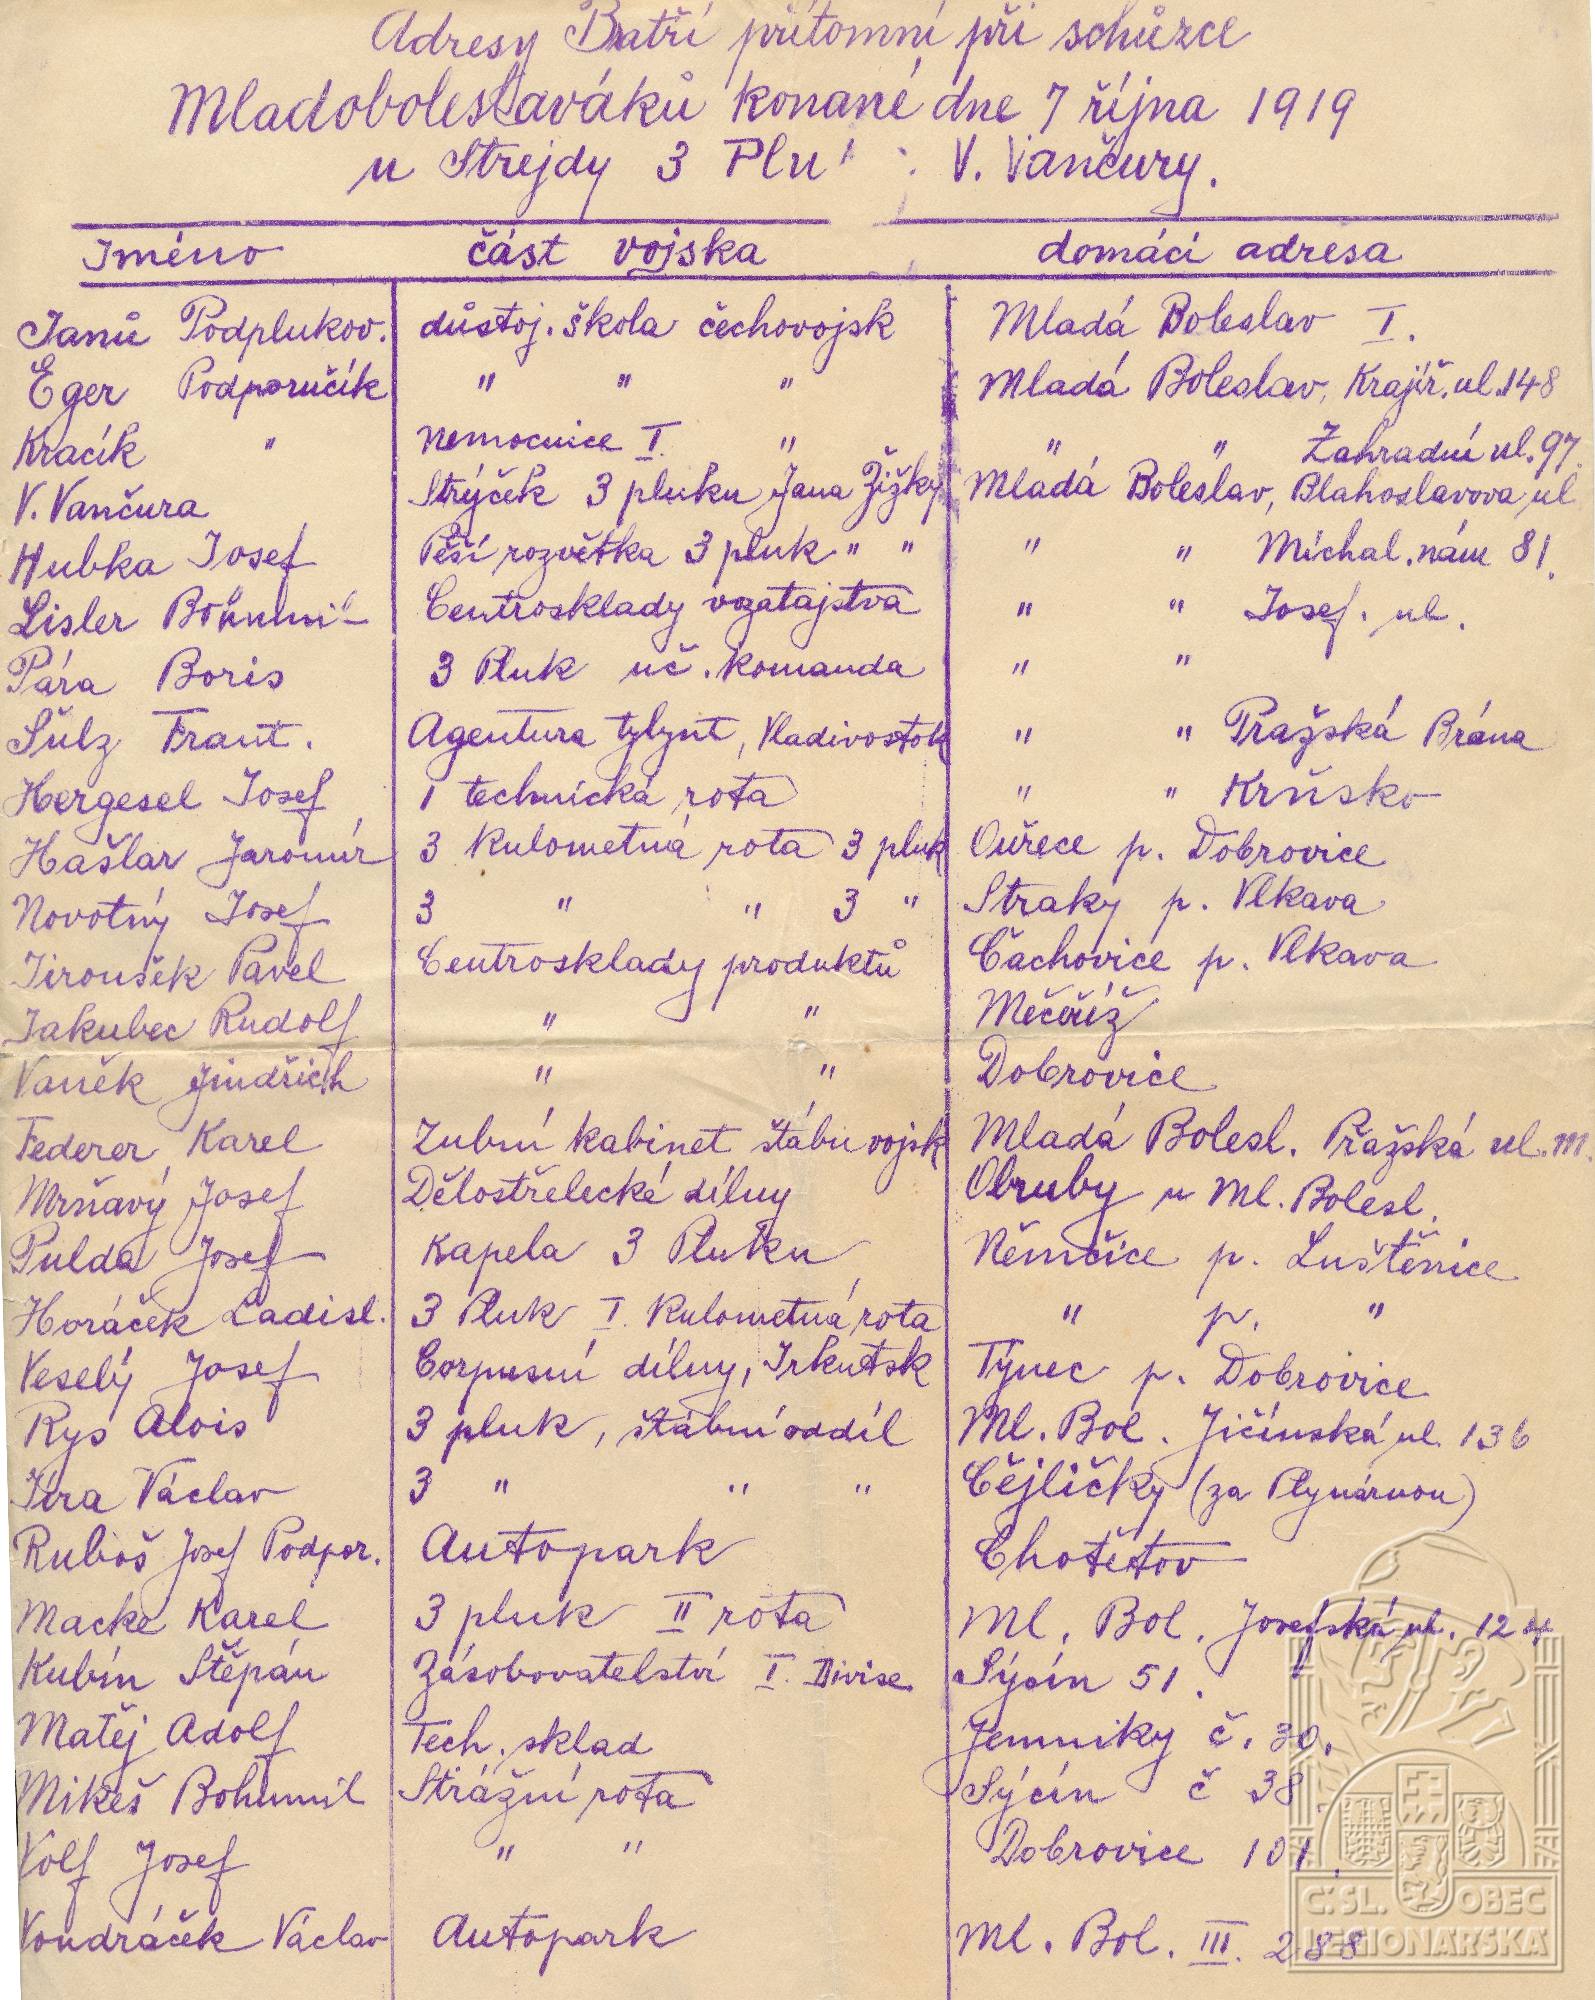 Adresy Bratří přítomní při schůzce
Mladoboleslaváků konané dne 7 října 1919
u Strejdy 3 Plu V. Vančury.
Jméno část vojska domácí adresa
Janů Podplukov. důstoj. škola čechovojsk Mladá Boleslav I.
Eger Podporučík " " " Mladá Boleslav, Krajíř. ul. 148
Kracík " Nemocnice I. " " " Zahradní ul. 97
V. Vančura Strýček 3 pluku Jana Žižky Mladá Boleslav, Blahoslavova ul
Hubka Josef Pěší rozvětka 3 pluk " " " " Michal. nám 81.
Lisler Bohumil Centrosklady vozatajstva " " Josef. ul.
Pára Boris 3 Pluk uč. komanda " "
Šulz Frant. Agentura tylynt, Vladivostok " " Pražská Brána
Hergesel Josef 1 technická rota " " Krňsko
Hašlar Jaromír 3 Kulometná rota 3 pluk Ouřece p. Dobrovice
Novotný Josef 3 " " 3 " Straky p. Vlkava
Jiroušek Pavel Centrosklady produktů Čachovice p. Vlkava
Jakubec Rudolf " " Mečeříž
Vaněk Jindřich " " Dobrovice
Federer Karel Zubní kabinet štábu vojsk Mladá Bolesl. Pražská ul.
Mrňavý Josef Dělostřelecké dílny Obruby u Ml. Bolesl.
Pulda Josef Kapela 3 Pluku Němčice p. Luštěnice
Horáček Ladisl. 3 Pluk I. Kulometná rota " p. "
Veselý Josef Corpusní dílny, Irkutsk Týnec p. Dobrovice
Rys Alois 3 pluk, štábní oddíl Ml. Bol. Jičínská ul. 136
Jíra Václav 3 " " " Čejličky (za Plynárnou)
Rubeš Josef Podpor. Autopark Chotětov
Macke Karel 3 pluk II rota Ml. Bol. Josefská ul. 124
Kubín Štěpán Zásobovatelství I. Divise Sýčín 51.
Matěj Adolf Tech. sklad Jemníky č. 30.
Mikeš Bohumil Strážní rota Sýčín č 38.
Volf Josef " " Dobrovice 101.
Vondráček Václav Autopark Ml. Bol. III. 288
Č.SL. OBEC
LEGIONÁŘSKÁ